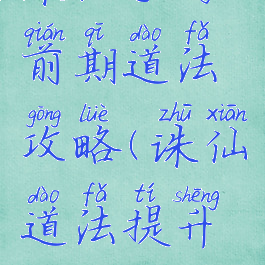 qián qī dào fǎ
前期道法
gōng lüè zhū xiān
攻略(诛仙
dào fǎ tí shēng
道法提升